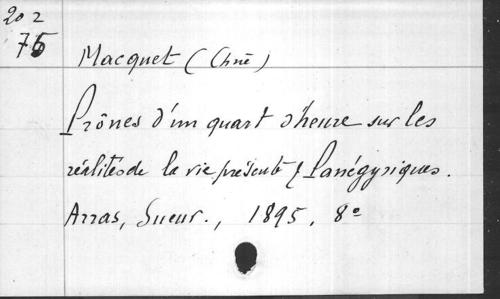 202
75
Macquet (Chne)
Prônes d'un quart d'heure sur les
réalités de la vie présente & Panégyriques.
Arras, Sueur., 1895, 8º